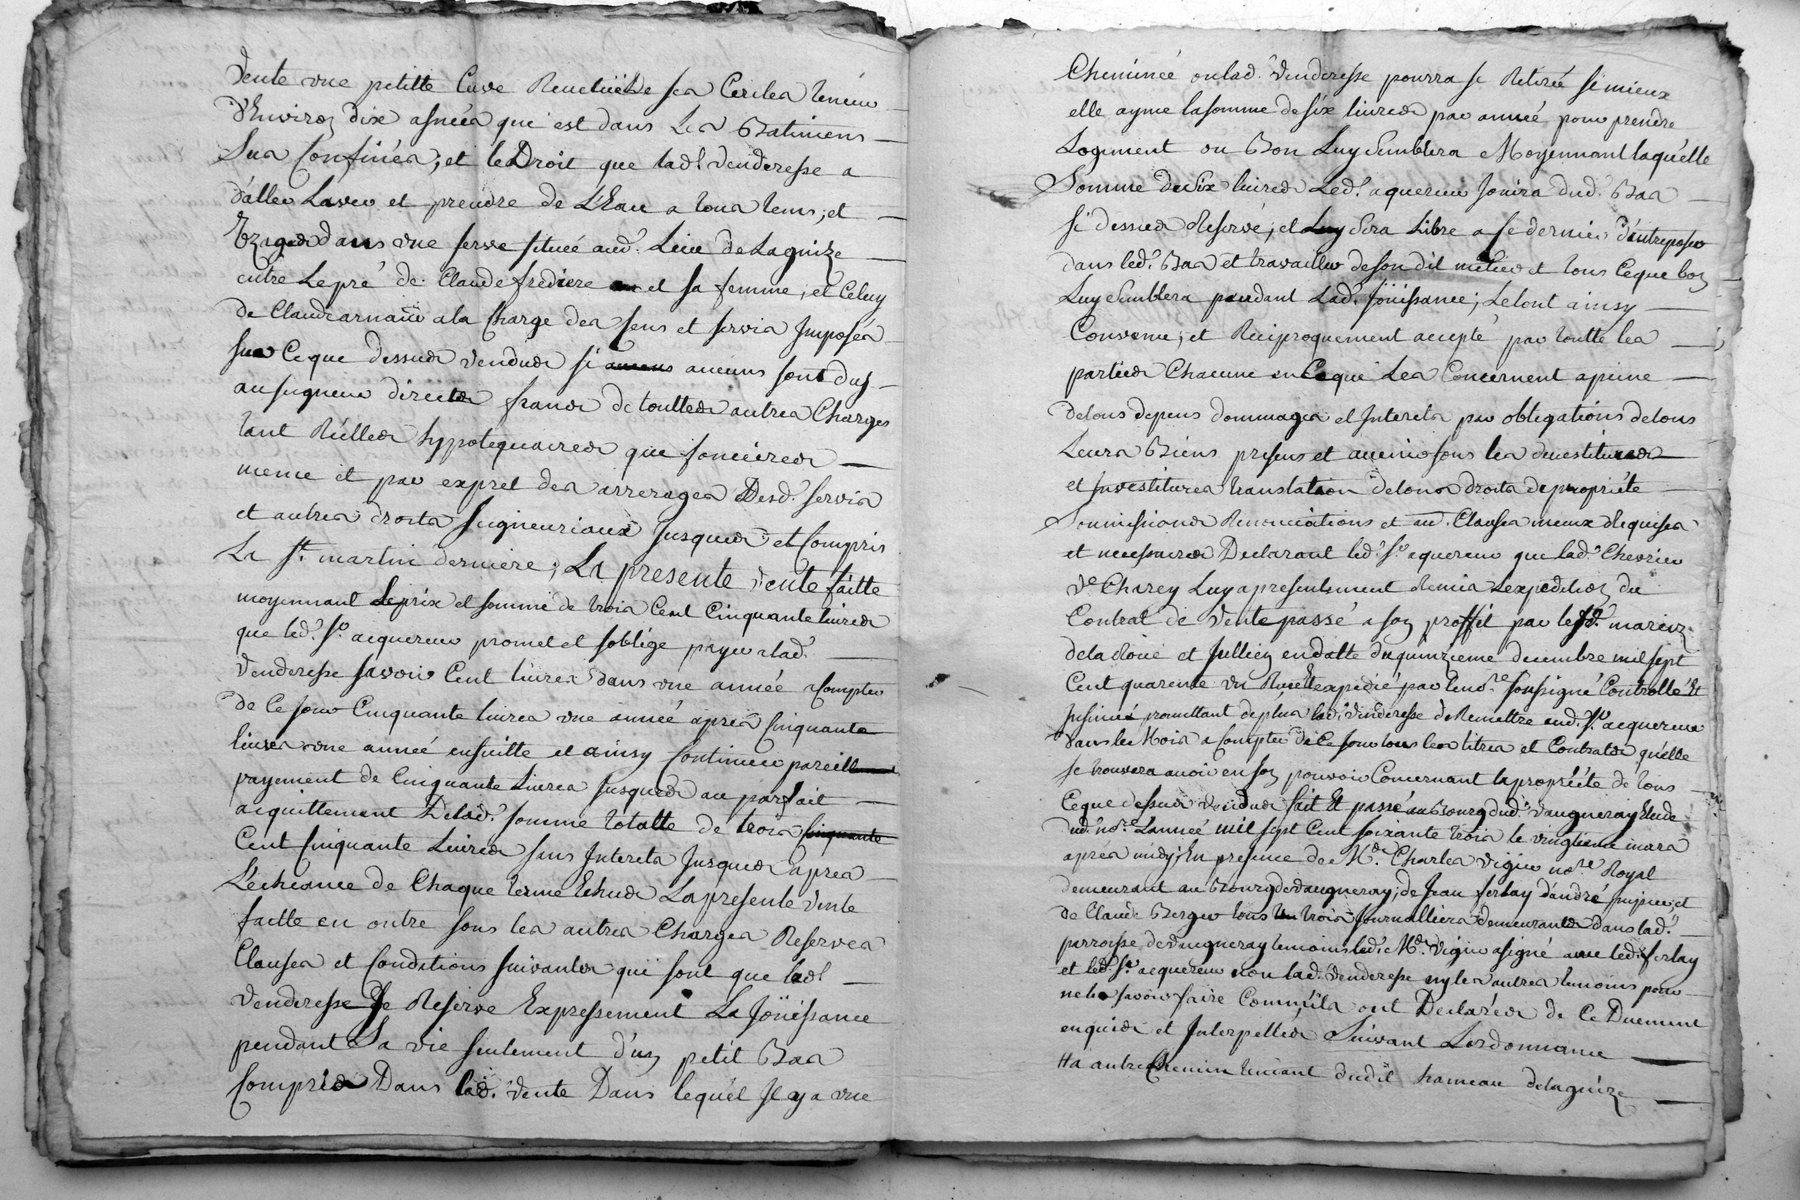 vente une petitte Cuve Reueluë de ses Cercles teneur
d'Environ dix asnées que est dans Les Batimens
Sus Confinés; et le Droit que lad. venderesse a
d'aller Laver et prendre de L'Eau a tous tems, et
Uzages dans une serve située aud. Lieu de Lagnize
entre Le pré de Claude frediere et sa femme, et Celuy
de Claude arnaud a la Charge des sens et servis Imposés
sur Ce que dessus vendues si aucuns sont dus
au seigneur directe franche de touttes autres Charges
tant Réelles hypotequaires que foncieres
meme et par exprel des arrerages Desd. servis
et autres droits seigneuriaux jusques et Compris
La St. martin derniere; La presente vente faitte
moyennant Le prix et somme de trois Cent Cinquante livres
que led. Sr. acquereur promet et s'oblige payer a lad.
venderesse savoir Cent livres dans une année a Compter
de Ce jour Cinquante livres une année apres Cinquante
livres une année ensuitte et ainsy Continuer pareil
payement de Cinquante Livres jusques au parfait
acquittement De lad. somme totalle de trois Cinquante
Cent Cinquante Livres sans Interets jusques Eapres
L'echeance de Chaque terme Echue La presente vente
faitte en outre sous les autres Charges Reserves
Clauses et Conditions suivantes qui sont que lad.
venderesse Se Reserve Expressement La Joüissance
pendant Sa vie seulement d'un petit Bas
Compris Dans lad. vente Dans lequel Il y a une
Cheminée ou lad. venderesse pourra se Retiré si mieux
elle ayme la somme de six livres par année pour prendre
Logement ou Bon Luy Semblera Moyennant laquelle
Somme de Six livres Led. aquereur Jouira dud. Bas
si dessus Reservé; et Luy Sera Libre a se dernier d'entreposer
dans led. Bas et travailler de son dit metier et tous Ceque bon
Luy Semblera pendant Lad. joüissance; Le tout ainsy
Convenu, et Reciproquement accepté par toutte les
parties Chacune en Ceque Les Concernent a peine
de tous depens dommages et Interets par obligations de tous
Leurs Biens presens et avenir sous les devestitures
et Investitures translation de tous droits de propriéte
Soumissions Renonciations et au. Clauses mieux Requises
et necessaires Declarant led. Sr. aquereur que lad. Chevrier
de Charey Luy a presentement Remis L'expedition du
Contrat de vente passé a son proffit par les Sd. mareiz
de la Roüe et Jullien en datte du quinzieme decembre mil sept
Cent quarente un Receu Et expedié par le no.re soussigné Controllé Et
Insinué promettant de plus lad. venderesse de Remettre aud. Sr. acquereur
dans le Mois a Compter de Ce jour tous les titres et Contrats quelle
se trouvera avoir en son pouvoir Concernant la propriéte de tous
Ceque dessus vendues fait Et passé au Bourg dud. vaugneray Etude
dud. no.re L'année mil sept Cent soixante trois le vingtieme mars
apres midy; En presence de Me. Charles vigier no.re Royal
demeurant au Bourg de Vaugneray, de Jean ferlay d'andré pupier, et
de Claude Berger tous trois journalliers demeurants dans lad.
parroisse de Vaugneray temoins led. Me. vigier a signé avec led. ferlay
et led. Sr. acquereur non lad. venderesse ny les autres temoins pour
ne le savoir faire Comme ils ont Declarés de Ce Duement
enquis et Interpellés Suivant L'ordonnance
#a autre Chemin tiriant dudit hameau de lagnize